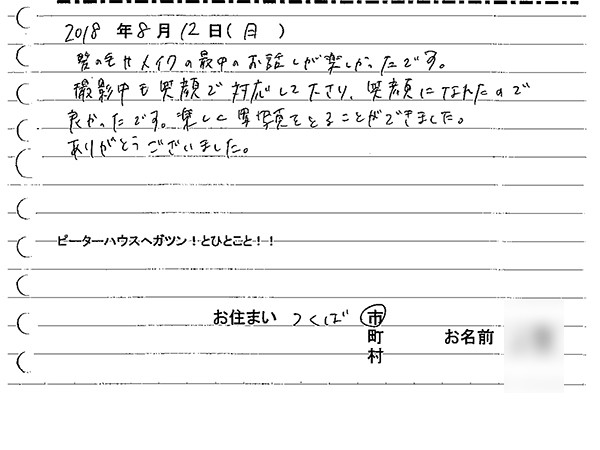 2018 年 8 月 12 日( 日 )
髪の毛やメイクの最中のお話しが楽しかったです。
撮影中も笑顔で対応して下さり、笑顔になれたので
良かったです。楽しく写真をとることができました。
ありがとうございました。
ピーターハウスへガツン！とひとこと！！
お住まい つくば 市
町 お名前
村